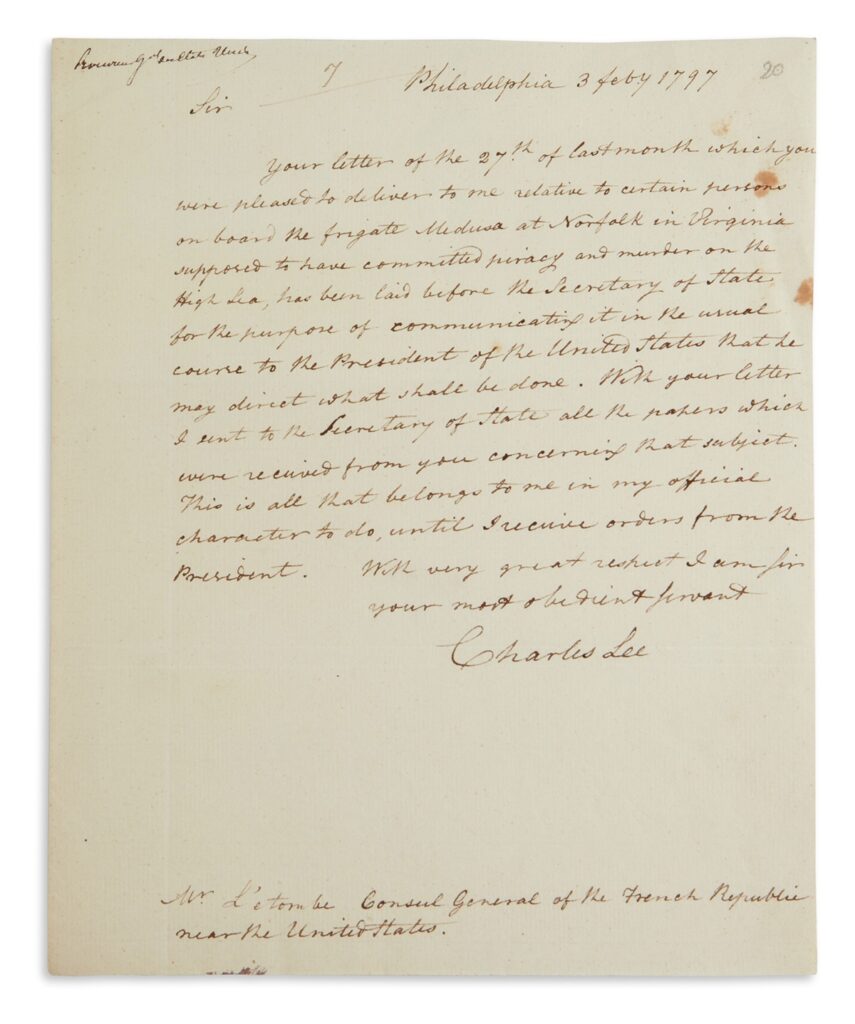 Procureur Gal des Etats Unis
7
Philadelphia 3 feby 1797
20
Sir
Your letter of the 27th of last month which you
were pleased to deliver to me relative to certain persons
on board the frigate Medusa at Norfolk in Virginia
supposed to have committed piracy and murder on the
High Sea, has been laid before the Secretary of State
for the purpose of communicating it in the usual
course to the President of the United States that he
may direct what shall be done. With your letter
I sent to the Secretary of State all the papers which
were received from you concerning that subject.
This is all that belongs to me in my official
character to do, until I receive orders from the
President. With very great respect I am Sir
your most obedient servant
Charles Lee
Mr L'etombe Consul General of the French Republic
near the United States.